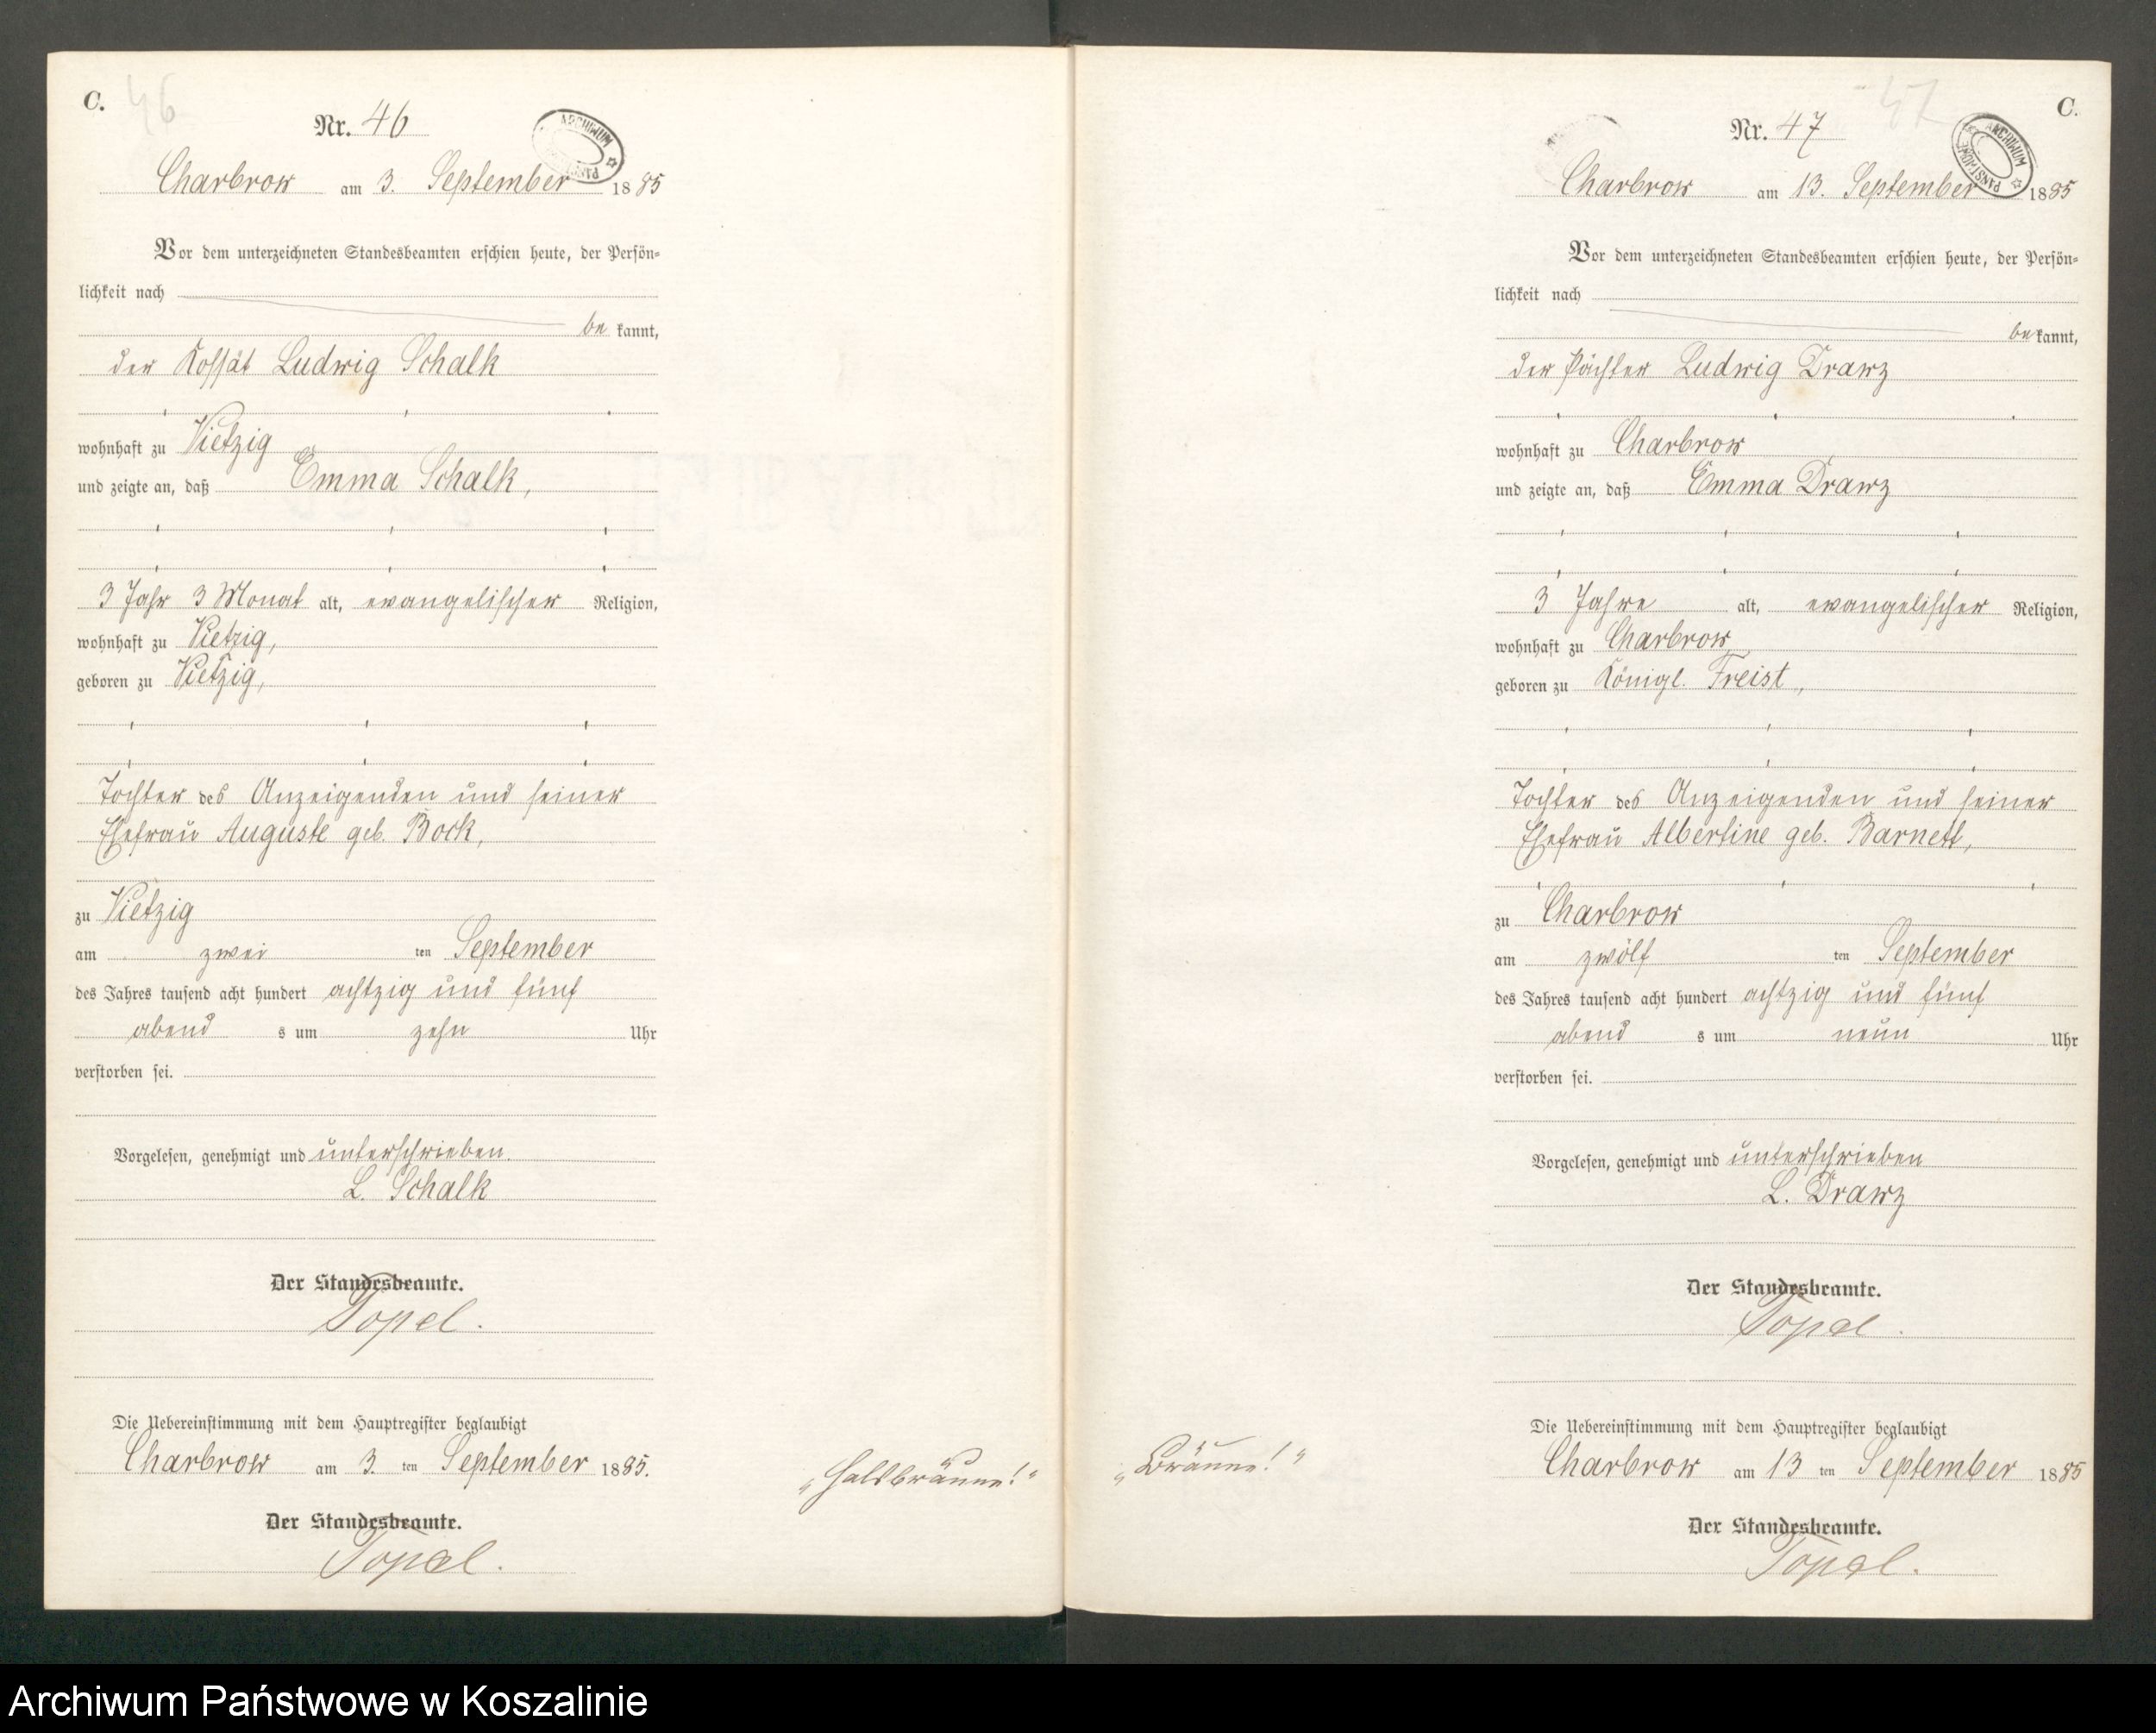 C.
46
Nr. 46
ARCHIWUM
Charbrow am 3. September 1885
Vor dem unterzeichneten Standesbeamten erschien heute, der Persön=
lichkeit nach
be kannt,
der Kossät Ludwig Schalk
wohnhaft zu Vietzig
und zeigte an, daß Emma Schalk,
3 Jahr 3 Monat alt, evangelischer Religion,
wohnhaft zu Vietzig,
geboren zu Vietzig,
Tochter des Anzeigenden und seiner
Ehefrau Auguste geb. Bock,
zu Vietzig
am zwei ten September
des Jahres tausend acht hundert achtzig und fünf
abend s um zehn Uhr
verstorben sei.
Vorgelesen, genehmigt und unterschrieben.
L. Schalk
Der Standesbeamte.
Topel.
Die Uebereinstimmung mit dem Hauptregister beglaubigt
Charbrow am 3. ten September 1885.
Der Standesbeamte.
Topel.
„Halsbräune!“
C.
47
Nr. 47
ARCHIWUM
Charbrow am 13. September 1885
Vor dem unterzeichneten Standesbeamten erschien heute, der Persön=
lichkeit nach
be kannt,
der Pächter Ludwig Drawz
wohnhaft zu Charbrow
und zeigte an, daß Emma Drawz
3 Jahre alt, evangelischer Religion,
wohnhaft zu Charbrow,
geboren zu Königl. Freist,
Tochter des Anzeigenden und seiner
Ehefrau Albertine geb. Barnett,
zu Charbrow
am zwölf ten September
des Jahres tausend acht hundert achtzig und fünf
abend s um neun Uhr
verstorben sei.
Vorgelesen, genehmigt und unterschrieben
L. Drawz
Der Standesbeamte.
Topel.
Die Uebereinstimmung mit dem Hauptregister beglaubigt
Charbrow am 13 ten September 1885
Der Standesbeamte.
Topel.
„Bräune!“
Archiwum Państwowe w Koszalinie